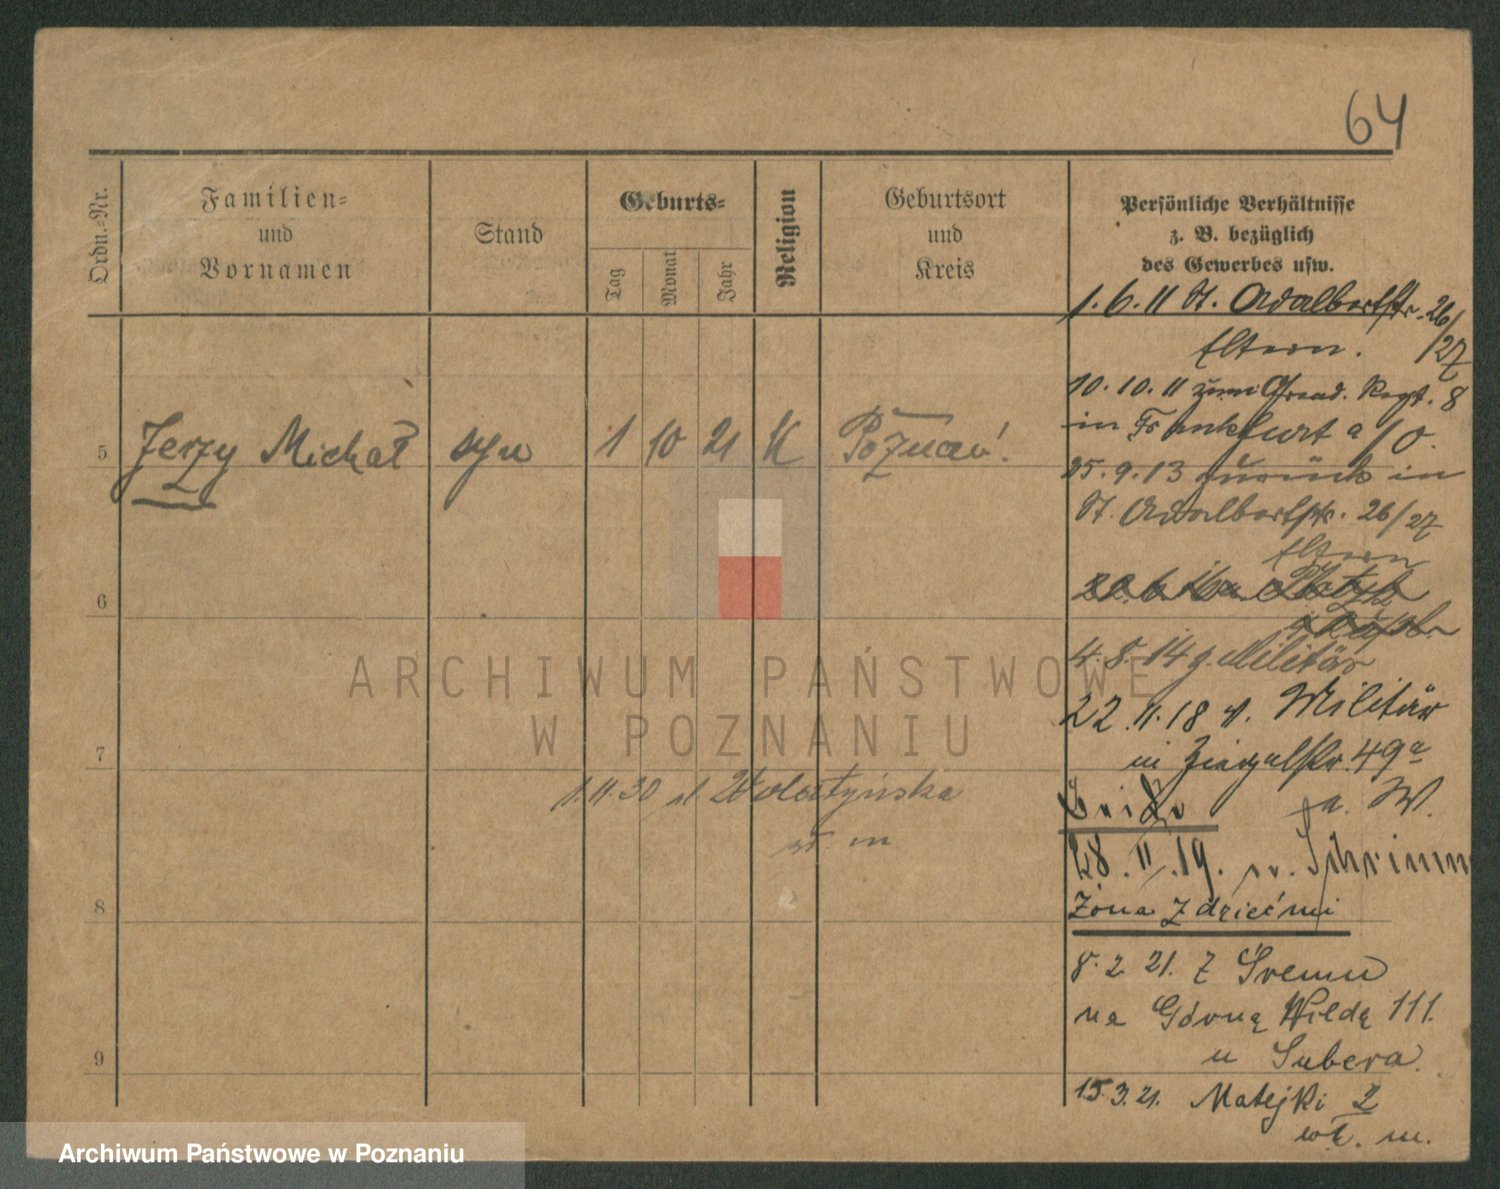 64
Ordn.-Nr.
Familien-
und
Vornamen
Stand
Geburts-
Tag
Monat
Jahr
Religion
Geburtsort
und
Kreis
Persönliche Verhältnisse
z. B. bezüglich
des Gewerbes usw.
1. 6. 11 St. Adalbertstr. 26/
Eltern. /27
10. 10. 11 zum Grend. Regt. 8
in Frankfurt a/O.
5 Jerzy Michał syn 1 10 21 K Poznań.
25. 9. 13 zurück in
St. Adalbertstr. 26/27
Eltern
6
4. 8. 14 z. Militär
22. 11. 18 v. Militär
in Ziegelstr. 49a
7
1.11.30 Wolsztyńska
a. W.
28. II. 19. Schrimm
8
Żona z dziećmi
8. 2 21. z Śremu
na Górną Wildę 111.
u Subera.
9
15.3.21. Matejki 2
wł. m.
ARCHIWUM PAŃSTWOWE
W POZNANIU
Archiwum Państwowe w Poznaniu